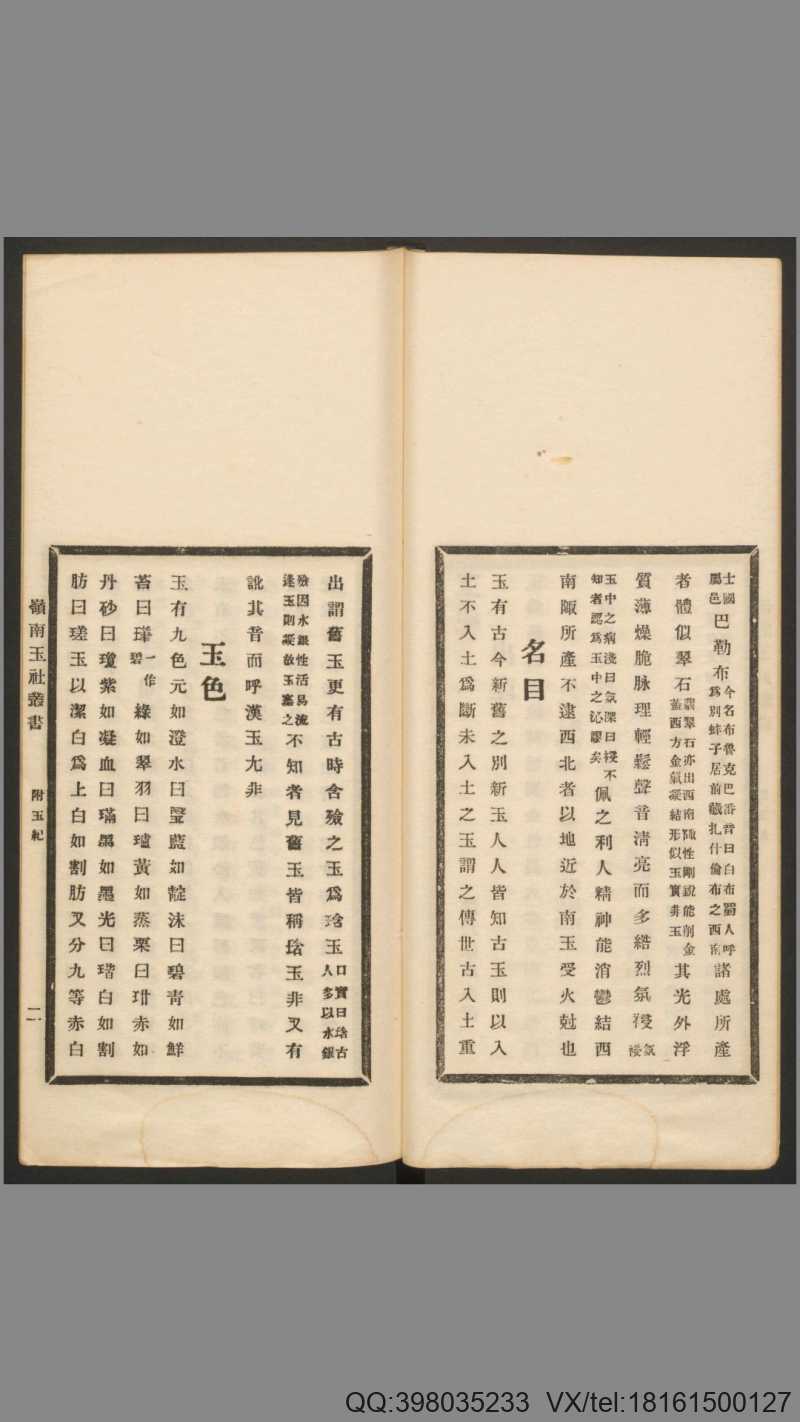 士國屬邑巴勒布今名布魯克巴番音曰白布蜀人呼爲別蚌子居前藏扎什倫布之西南諸處所產
者體似翠石翡翠石亦出西南陬性剛說能削金蓋西方金氣凝結形似玉實靑玉其光外浮
質薄燥脆脉理輕鬆聲音淸亮而多綹烈氛祲氛祲
玉中之病淺曰氛深曰祲不知者認爲玉中之沁謬矣佩之利人精神能消鬱結西
南陬所產不逮西北者以地近於南玉受火尅也
名目
玉有古今新舊之別新玉人人皆知古玉則以入
土不入土爲斷未入土之玉謂之傳世古入土重
出謂舊玉更有古時含殮之玉爲琀玉口實曰琀古人多以水銀
殮因水銀性活易流逢玉則凝故玉塞之不知者見舊玉皆稱琀玉非又有
訛其音而呼漢玉尢非
玉色
玉有九色元如澄水曰瑿藍如靛沫曰碧靑如鮮
苔曰一作碧綠如翠羽曰瓐黃如蒸栗曰玵赤如
丹砂曰瓊紫如凝血曰璊黑如墨光曰瑎白如割
肪曰瑳玉以潔白爲上白如割肪又分九等赤白
嶺南玉社叢書
附玉紀
二
QQ:398035233 VX/tel:18161500127